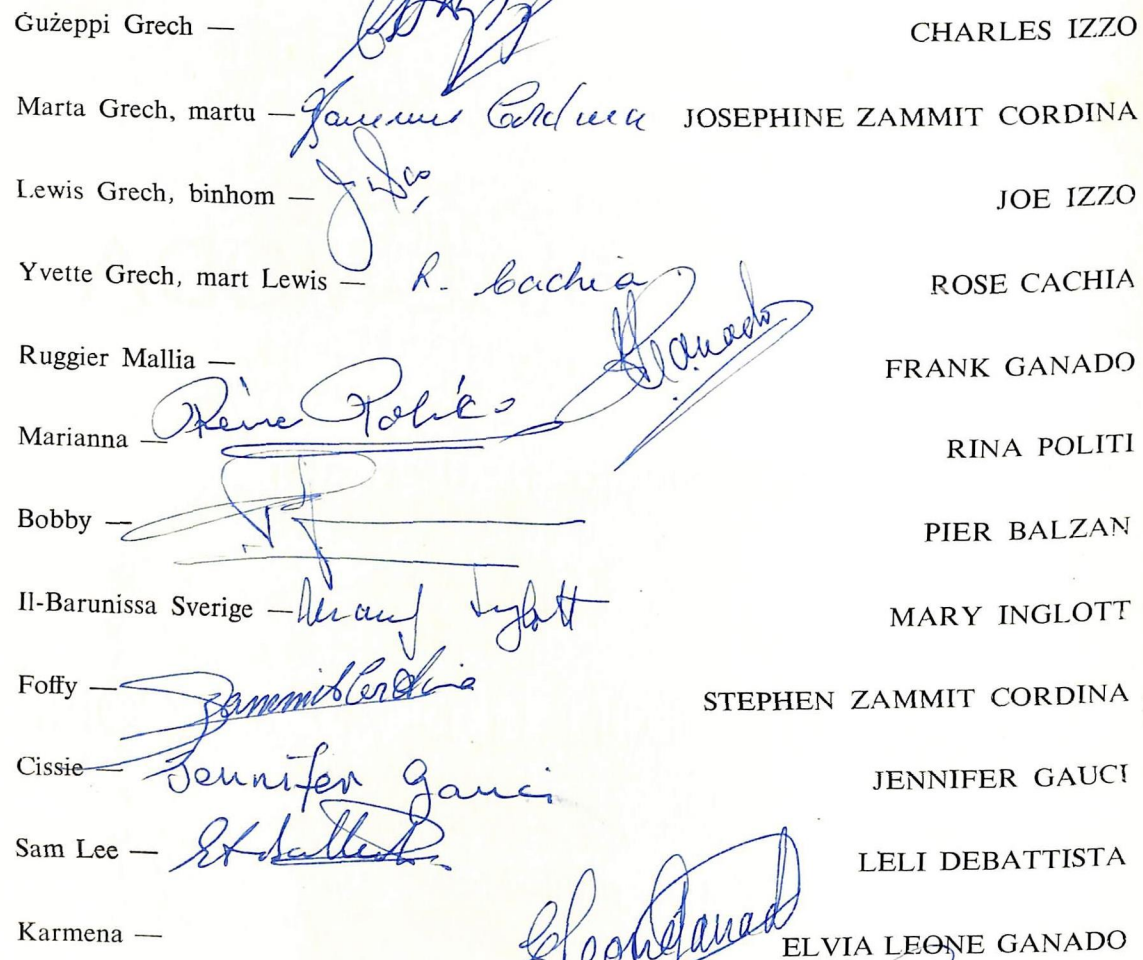 Ġużeppi Grech — CHARLES IZZO
Marta Grech, martu — Zammit Cordina JOSEPHINE ZAMMIT CORDINA
Lewis Grech, binhom — JOE IZZO
Yvette Grech, mart Lewis — R. Cachia ROSE CACHIA
Ruggier Mallia — Ganado FRANK GANADO
Marianna — Politi RINA POLITI
Bobby — PIER BALZAN
Il-Barunissa Sverige — Mary Inglott MARY INGLOTT
Foffy — Zammit Cordina STEPHEN ZAMMIT CORDINA
Cissie — Jennifer Gauci JENNIFER GAUCI
Sam Lee — LELI DEBATTISTA
Karmena — ELVIA LEONE GANADO